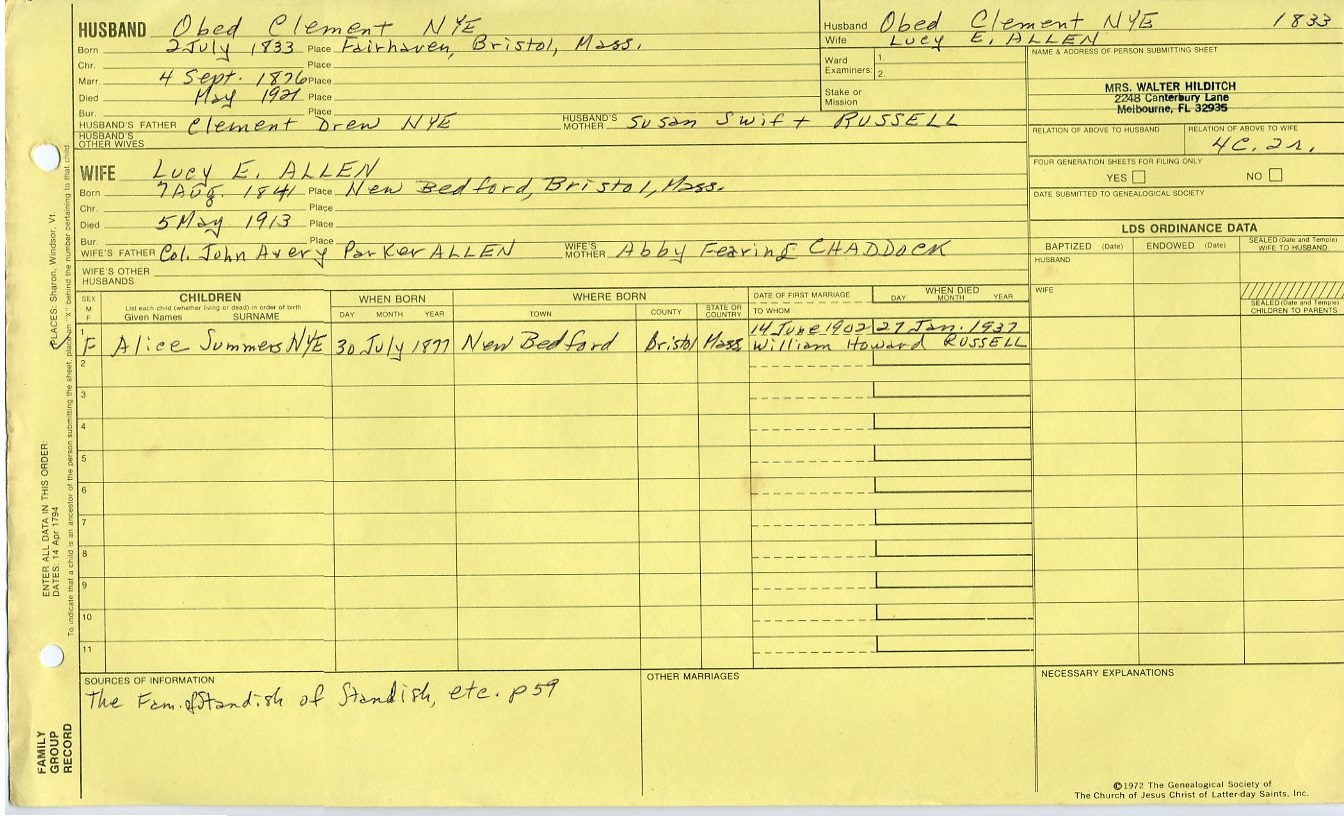 HUSBAND Obed Clement NYE
Born 2 July 1833 Place Fairhaven, Bristol, Mass.
Chr. Place
Marr. 4 Sept. 1876 Place
Died May 1921 Place
Bur. Place
HUSBAND'S FATHER Clement Drew NYE HUSBAND'S MOTHER Susan Swift RUSSELL
HUSBAND'S OTHER WIVES
Husband Obed Clement NYE 1833
Wife Lucy E. ALLEN
Ward Examiners: 1.
2.
Stake or Mission
NAME & ADDRESS OF PERSON SUBMITTING SHEET
MRS. WALTER HILDITCH
2248 Canterbury Lane
Melbourne, FL 32935
RELATION OF ABOVE TO HUSBAND RELATION OF ABOVE TO WIFE
4C. 2r.
FOUR GENERATION SHEETS FOR FILING ONLY
YES NO
DATE SUBMITTED TO GENEALOGICAL SOCIETY
WIFE Lucy E. ALLEN
Born 7 Aug. 1841 Place New Bedford, Bristol, Mass.
Chr. Place
Died 5 May 1913 Place
Bur. Place
WIFE'S FATHER Col. John Avery Parker ALLEN WIFE'S MOTHER Abby Fearing CHADDOCK
WIFE'S OTHER HUSBANDS
LDS ORDINANCE DATA
BAPTIZED (Date) ENDOWED (Date) SEALED (Date and Temple) WIFE TO HUSBAND
HUSBAND
WIFE
SEALED (Date and Temple) CHILDREN TO PARENTS
SEX M F
CHILDREN
List each child (whether living or dead) in order of birth
Given Names SURNAME
WHEN BORN
DAY MONTH YEAR
WHERE BORN
TOWN COUNTY STATE OR COUNTRY
DATE OF FIRST MARRIAGE
TO WHOM
WHEN DIED
DAY MONTH YEAR
1 14 June 1902 27 Jan. 1937
F Alice Summers NYE 30 July 1877 New Bedford Bristol Mass William Howard RUSSELL
2
3
4
5
6
7
8
9
10
11
SOURCES OF INFORMATION
The Fam. of Standish of Standish, etc. p 59
OTHER MARRIAGES
NECESSARY EXPLANATIONS
©1972 The Genealogical Society of
The Church of Jesus Christ of Latter-day Saints, Inc.
FAMILY
GROUP
RECORD
ENTER ALL DATA IN THIS ORDER:
DATES: 14 Apr 1794
PLACES: Sharon, Windsor, Vt.
To indicate that a child is an ancestor of the person submitting the sheet, place an "X" behind the number pertaining to that child.